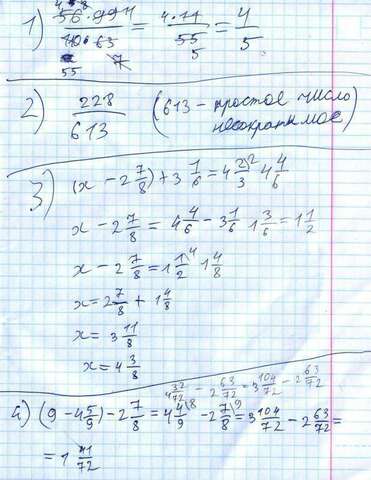 1) 56·99 / 110·63 = 4·11 / 55 = 4/5
5
55 7
2) 228/613 (613 - простое число
несократимое)
3) (x - 2 7/8) + 3 1/6 = 4 2/3 \2 4 4/6
x - 2 7/8 = 4 4/6 - 3 1/6 1 3/6 = 1 1/2
x - 2 7/8 = 1 1/2 \4 1 4/8
x = 2 7/8 + 1 4/8
x = 3 11/8
x = 4 3/8
4 32/72 - 2 63/72 = 3 104/72 - 2 63/72
4) (9 - 4 5/9) - 2 7/8 = 4 4/9 \8 - 2 7/8 \9 = 3 104/72 - 2 63/72 =
= 1 41/72